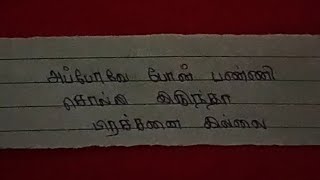 அப்போவே போன் பண்ணி
சொல்லி இருந்தா
பிரச்சனை இல்லை